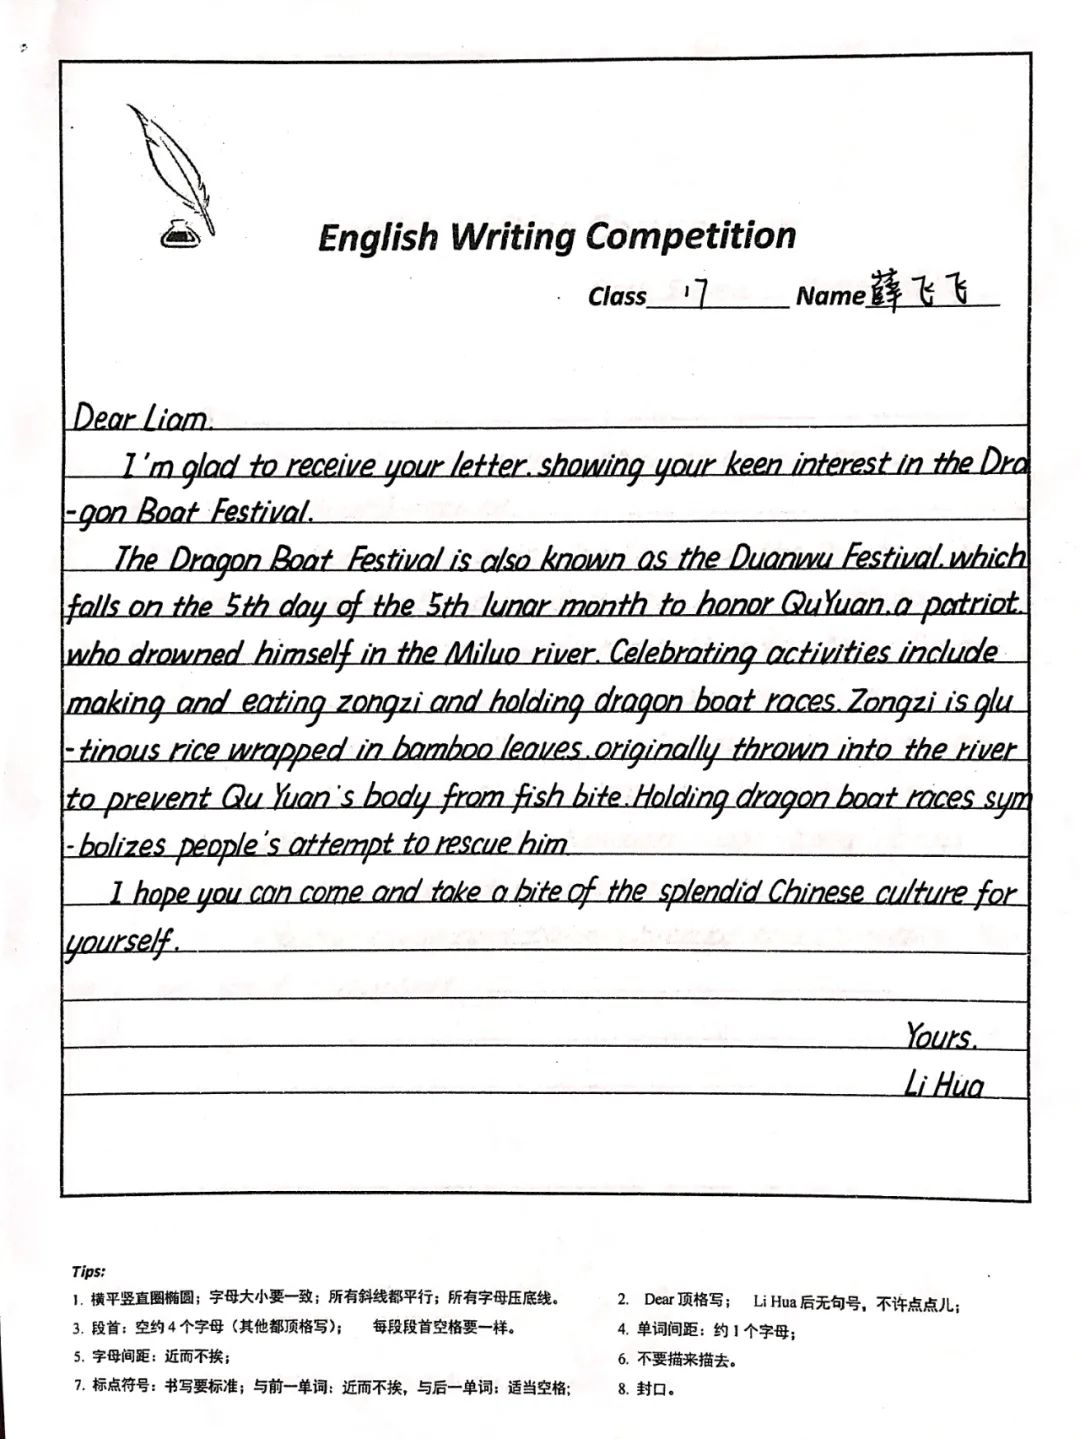 English Writing Competition
Class 17 Name 薛飞飞
Dear Liam.
I'm glad to receive your letter. showing your keen interest in the Dra
-gon Boat Festival.
The Dragon Boat Festival is also known as the Duanwu Festival. which
falls on the 5th day of the 5th lunar month to honor QuYuan. a patriot.
who drowned himself in the Miluo river. Celebrating activities include
making and eating zongzi and holding dragon boat races. Zongzi is glu
-tinous rice wrapped in bamboo leaves. originally thrown into the river
to prevent Qu Yuan's body from fish bite. Holding dragon boat races sym
-bolizes people's attempt to rescue him
I hope you can come and take a bite of the splendid Chinese culture for
yourself.
Yours.
Li Hua
Tips:
1. 横平竖直圈椭圆；字母大小要一致；所有斜线都平行；所有字母压底线。
2. Dear 顶格写； Li Hua 后无句号，不许点点儿；
3. 段首：空约 4 个字母（其他都顶格写）； 每段段首空格要一样。
4. 单词间距：约 1 个字母；
5. 字母间距：近而不挨；
6. 不要描来描去。
7. 标点符号：书写要标准；与前一单词：近而不挨，与后一单词：适当空格；
8. 封口。